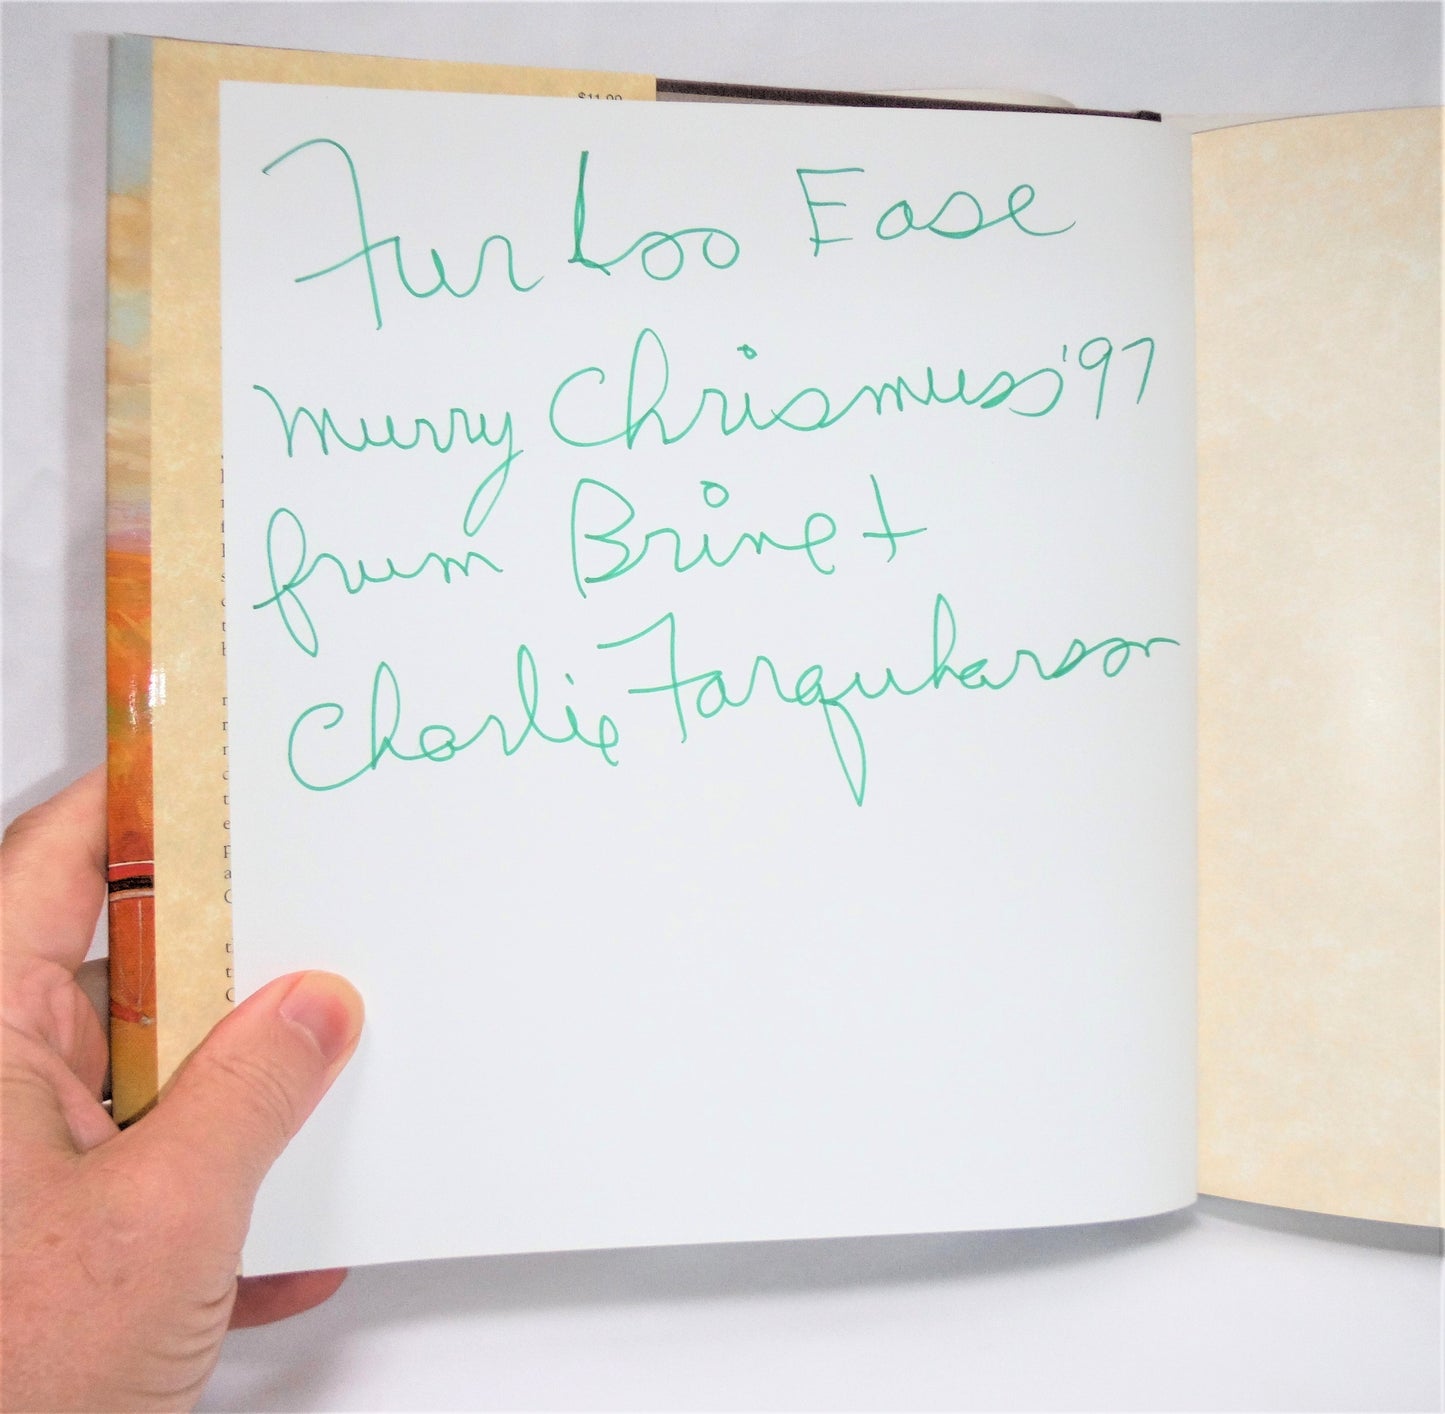 $11.99
Fur Loo Ease
Murry Chrismuss '97
frum Brine +
Charlie Farquharson